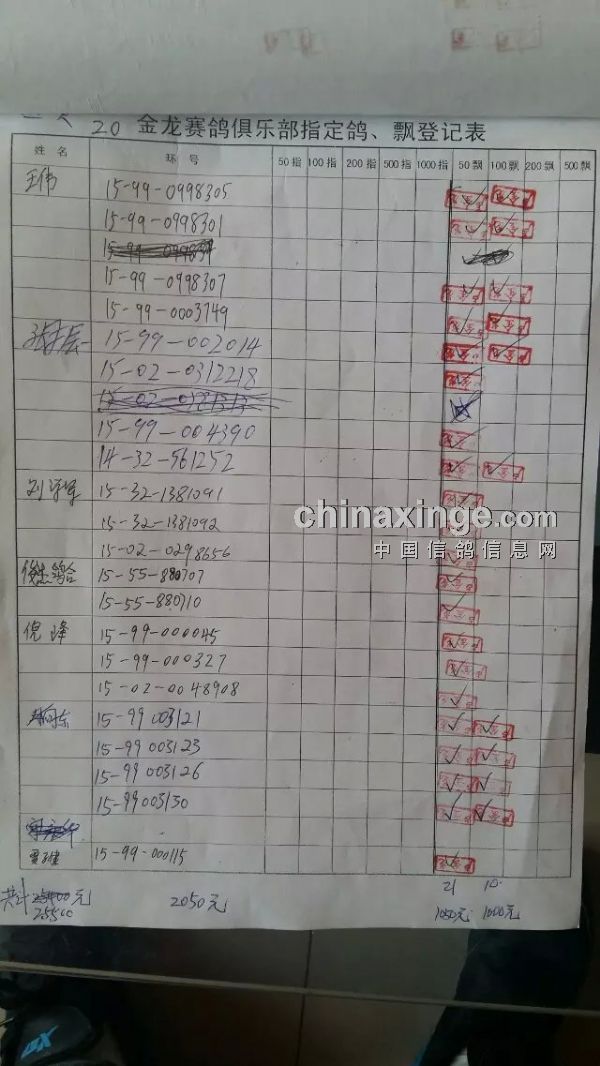 20 金龙赛鸽俱乐部指定鸽、飘登记表
姓名 环号 50指 100指 200指 500指 1000指 50飘 100飘 200飘 500飘
王伟 15-99-0998305
15-99-0998301
15-99-0998307
15-99-0003749
15-99-002014
15-02-0312218
15-99-004390
14-32-561252
15-32-1381091
15-32-1381092
15-02-0298656
15-55-880707
15-55-880710
倪峰 15-99-000045
15-99-000327
15-02-0048908
15-99 003121
15-99 003123
15-99 003126
15-99 003130
15-99-000115
21 10
共计 元 2050元 1050元 1000元
25500
chinaxinge.com
中国信鸽信息网